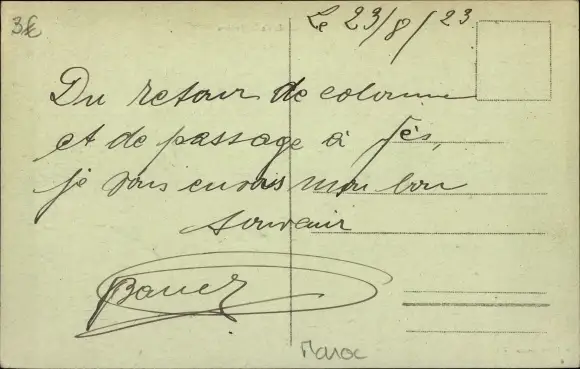 3€
Le 23/8/23
Du retour de colonne
et de passage à Fès,
je vous envois mon bon
souvenir
Bauer
Maroc